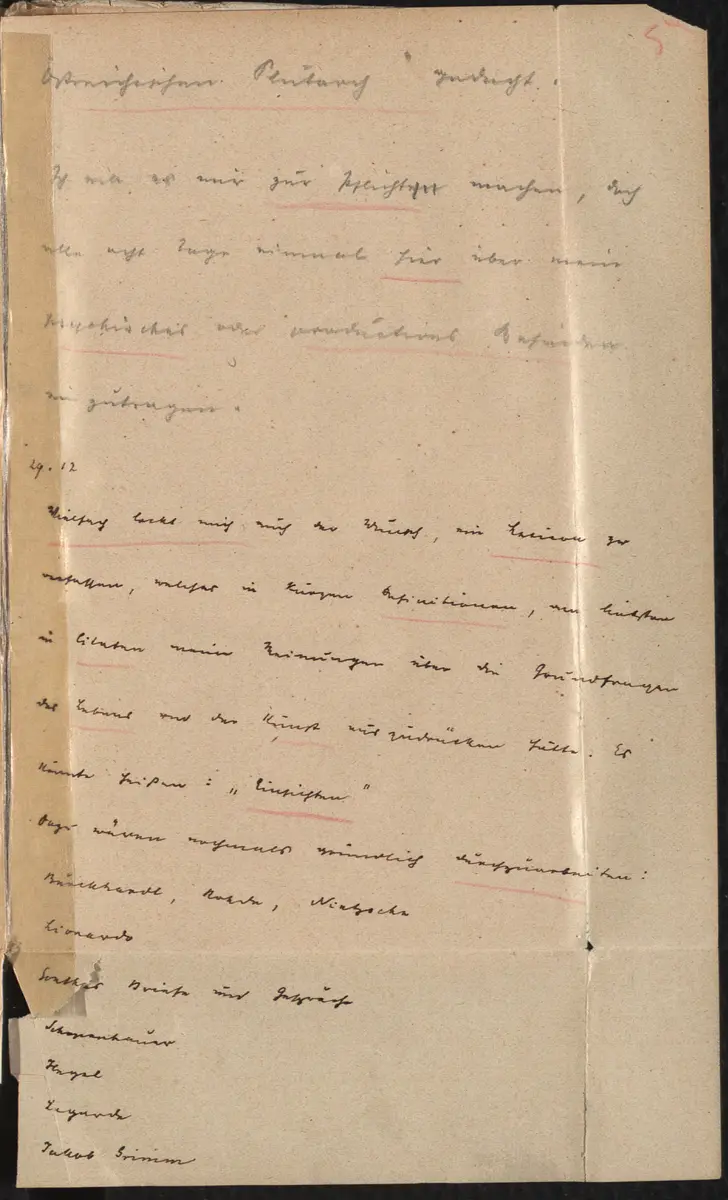 5
österreichischen Plutarch" gedacht.
Ich will es mir zur Pflicht machen, doch
alle acht Tage einmal hier über mein
psychisches oder productives Befinden
einzutragen.
29. 12
Vielfach lockt mich auch der Wunsch, ein Lexicon zu
verfassen, welches in kurzen Definitionen, am liebsten
in Citaten meine Meinungen über die Grundfragen
des Lebens und der Kunst auszudrücken hätte. Es
könnte heißen: „Einsichten"
Dazu wären nochmals gründlich durchzuarbeiten:
Burckhardt, Rohde, Nietzsche
Lionardo
Goethes Briefe und Gespräche
Schopenhauer
Hegel
Lagarde
Jakob Grimm